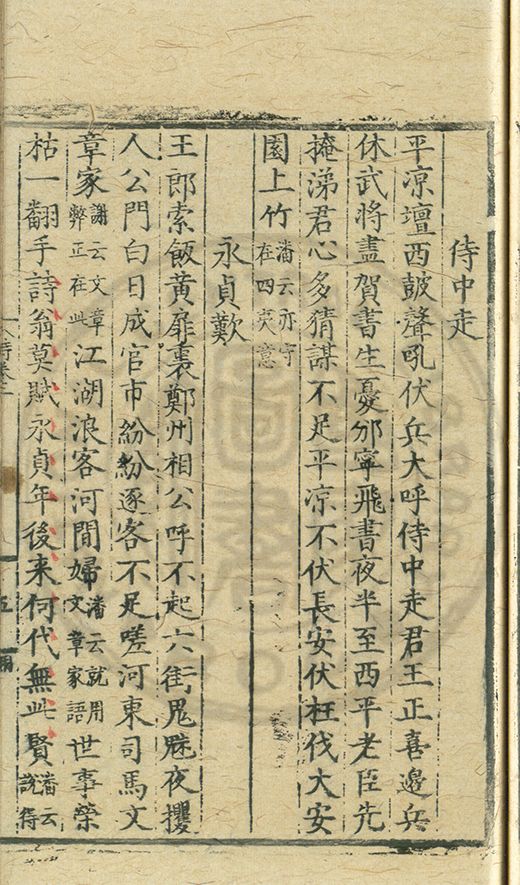 侍中走
平凉壇西鼓聲吼伏兵大呼侍中走君王正喜邊兵
休武將盡賀書生憂邠寧飛書夜半至西平老臣先
掩涕君心多猜謀不足平凉不伏長安伏枉伐大安
園上竹潘云亦守在四夷意
永貞歎
王郎索飯黃扉裏鄭州相公呼不起六街鬼魅夜攫
人公門白日成官市紛紛逐客不足嗟河東司馬文
章家謝云文章弊正在此江湖浪客河間婦潘云就用文章家語世事榮
枯一翻手詩翁莫賦永貞年後来何代無此賢潘云説得